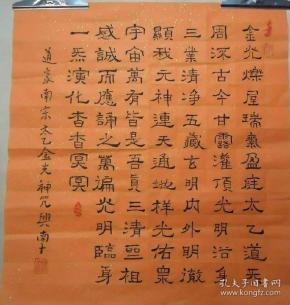 金光爍屋瑞氣盈庭太乙道炁
周流古今甘露灌頂光明浴身
三業清淨五藏玄明内外明徹
顯我元神連天通地祥光佑眾
宇宙萬有皆是吾真三清祖
感誠而應誦之萬徧光明臨身
一炁演化杳杳冥冥
道家南宗太乙金光神咒 興南
孔夫子旧书网